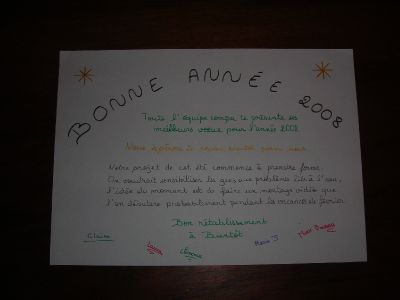 BONNE ANNÉE 2008
Toute l'équipe compa te présente ses
meilleurs voeux pour l'année 2008
Nous espérons te revoir bientôt parmi nous.
Notre projet de cet été commence à prendre forme.
On voudrait sensibiliser les gens aux problèmes liés à l'eau,
l'idée du moment est de faire un montage vidéo que
l'on débutera probablement pendant les vacances de février
Bon rétablissement
à Bientôt
Claire
Marie J